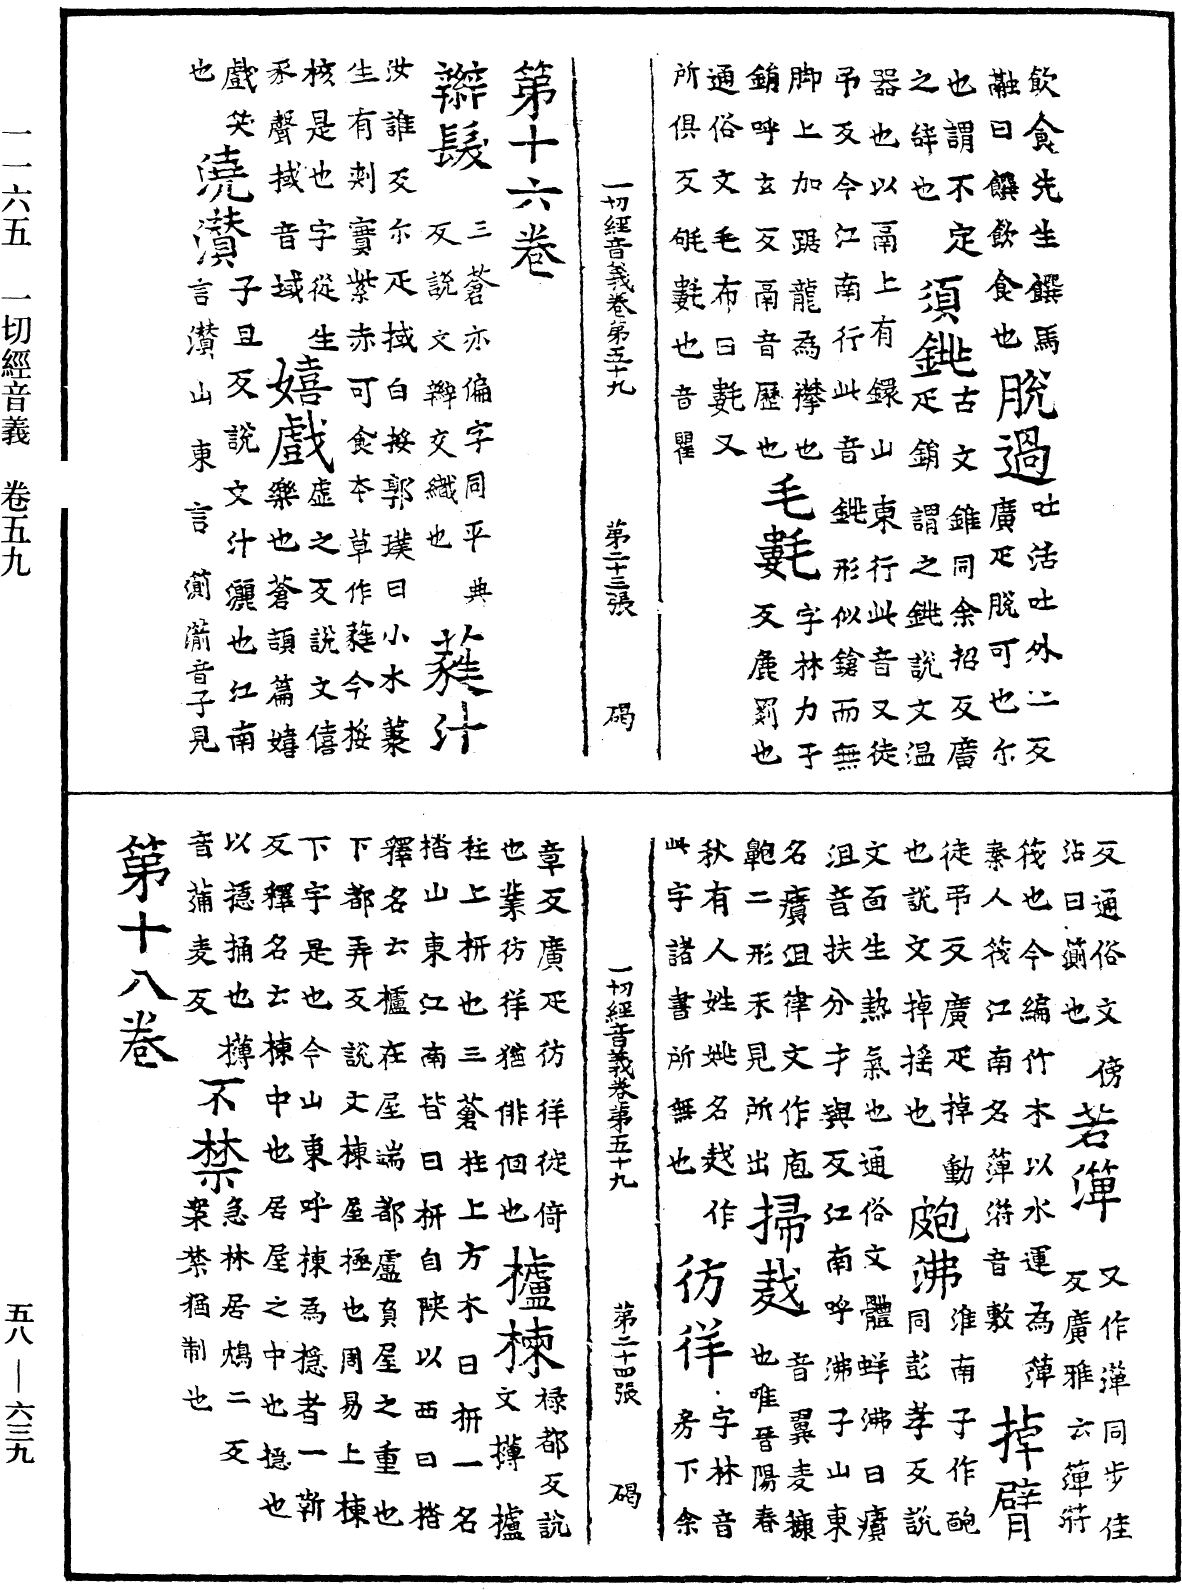 飲食先生饌馬
融曰饌飲食也
脫過
吐活吐外二反
廣疋脫可也尔
也謂不定
須銚
古文錐同余招反廣
之辝也
疋銷謂之銚說文温
器也以鬲上有鐶山東行此音又徒
弔反今江南行此音銚形似鎗而無
脚上加踞龍為攀也
銷呼玄反鬲音歷也
毛㲣
字林力于
反㲣罽也
通俗文毛布曰㲣又
所俱反㲣也音瞿
一切經音義卷第五十九 第二十三張 碣
第十六卷
辮髮
三蒼亦偏字同平典
反說文辮交織也
蕤汁
汝誰反尔疋棫白桵郭璞曰小木蕠
生有刺實紫赤可食本草作蕤今桵
核是也字從生
嬉戲
虛之反說文僖
樂也蒼頡篇嬉
豕聲棫音域
戲笑也
澆灒
子旦反說文汁灑也江南
言灒山東言湔音子見
反通俗文傍
沾曰湔也
若箄
又作𥱼同步佳
反廣雅云箄筏
筏也今編竹木以水運為箄
秦人筏江南名箄㳺音敷
掉臂
徒弔反廣疋掉動
也說文掉揺也
皰沸
淮南子作皰
同彭孝反說
文面生熱氣也通俗文體蚌沸曰癀
沮音扶分才與反江南呼沸子山東
名癀沮律文作庖
鞄二形未見所出
掃𧻲
音翼麦䴷
也唯晉陽春
秋有人姓姚名𧻲作
此字諸書所無也
彷徉
字林音
房下余
一切經音義卷第五十九 第二十四張 碣
章反廣疋彷徉徙倚
也業彷徉猶俳佪也
櫨棟
祿都反說
文欂櫨
柱上枅也三蒼柱上方木曰枅一名
㭼山東江南皆曰枅自陝以西曰㭼
釋名云櫨在屋端都盧負屋之重也
下都弄反說文棟屋極也周易上棟
下字是也今山東呼棟為檼者一靳
反釋名云棟中也居屋之中也檼也
以檼桶也欂
音蒲麦反
不禁
急林居鴆二反
案禁猶制也
第十八卷
一一六五 一切經音義 卷五九
五八—六三九